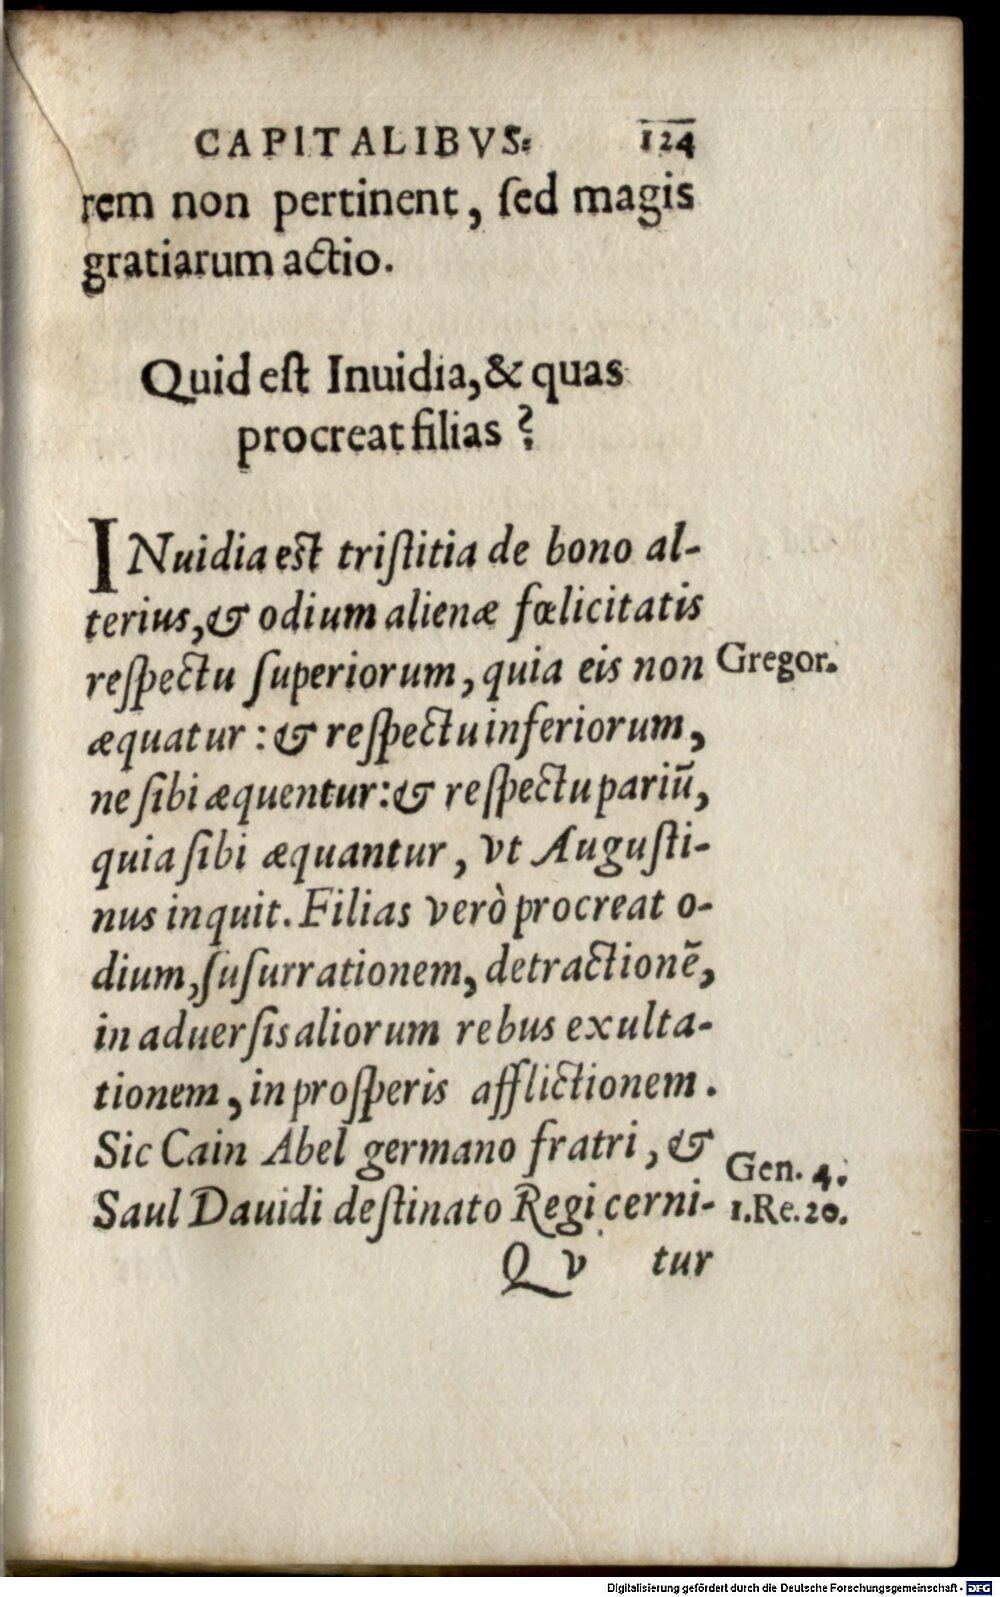 CAPITALIBVS. 124
rem non pertinent, ſed magis
gratiarum actio.
Quid eſt Inuidia, & quas
procreat filias?
INuidia eſt triſtitia de bono al-
terius, & odium alienæ fœlicitatis
reſpectu ſuperiorum, quia eis non
Gregor.
æquatur: & reſpectu inferiorum,
ne ſibi æquentur: & reſpectu pariũ,
quia ſibi æquantur, vt Auguſti-
nus inquit. Filias verò procreat o-
dium, ſuſurrationem, detractionẽ,
in aduerſis aliorum rebus exulta-
tionem, in proſperis afflictionem.
Sic Cain Abel germano fratri, &
Gen. 4.
Saul Dauidi deſtinato Regi cerni-
1.Re.20.
Q v tur
Digitalisierung gefördert durch die Deutsche Forschungsgemeinschaft - DFG